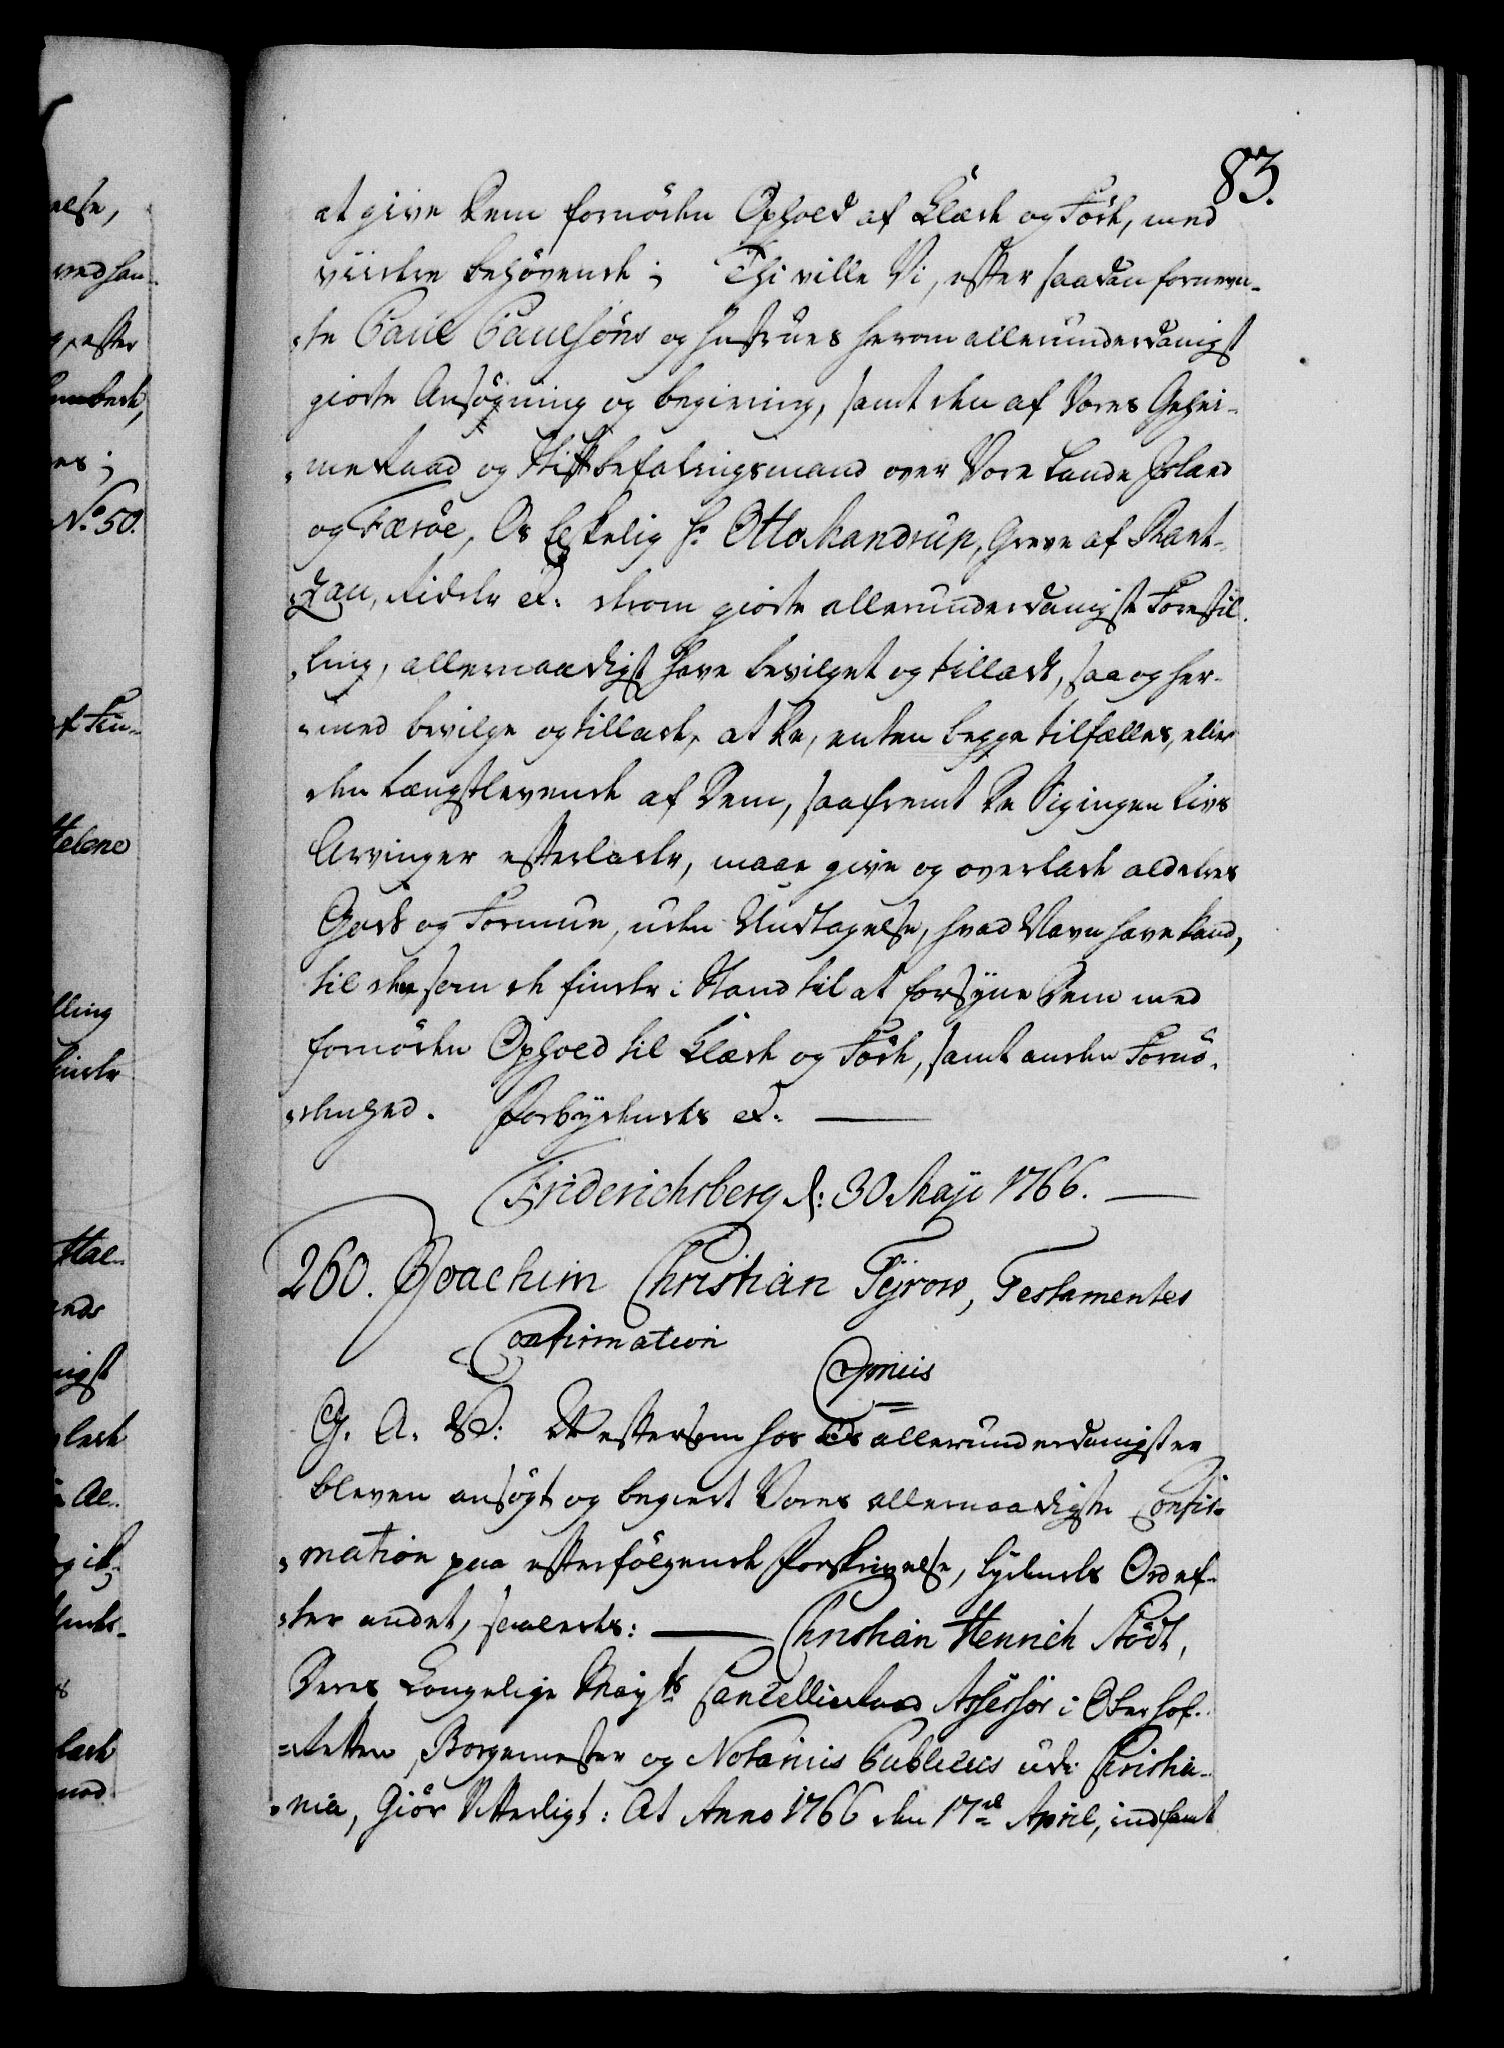 83.
at give dem fornöden Ophold af Klæde og Föde, med
viidere behövende; Thi ville Vi, efter saadan fornevn-
-te Paul Paulsöns og Hustrues herom allerunderdanigst
giorte Ansögning og begiering, samt den af Vores Gehei-
-meRaad og Stiftbefalingsmand over Vore Lande Island
og Færöe, Os Elskelig Hr Otto Mandrup, Greve af Rant-
-zau, Ridder etc: derom giorte allerunderdanigste Forestil-
-ling, allernaadigst have bevilget og tilladt, saa og her-
-med bevilge og tillade, at De, enten begge tilfælles, eller
den Længstlevende af Dem, saafremt De Sig ingen Livs
Arvinger efterlader, maae give og overlade aldeles
Gods og Formue, uden Undtagelse, hvad Navn have kand,
til den som de finder i Stand til at forsyne Dem med
fornöden Ophold til Klæde og Föde, samt anden Fornö-
-denhed. Forbydendes etc. ———
Friderichsberg d: 30 Maji 1766. ———
260. Joachim Christian Fejrow, Testamentes
Confirmation
Gratis
G. A. V: At eftersom hos Os allerunderdanigst er
bleven ansögt og begiert Vores allernaadigste Confir-
-mation paa efterfölgende Forskrivelse, lydendes Ord ef-
-ter andet, saaledes: ——— Christian Henrich Stödt,
Deres Kongelige Mayts CancellieRaad Assessor i Oberhof-
=Retten, Borgemester og Notarius Publicus udi Christia-
-nia, Giör Vitterligt: At Anno 1766 den 17de April, indfandt